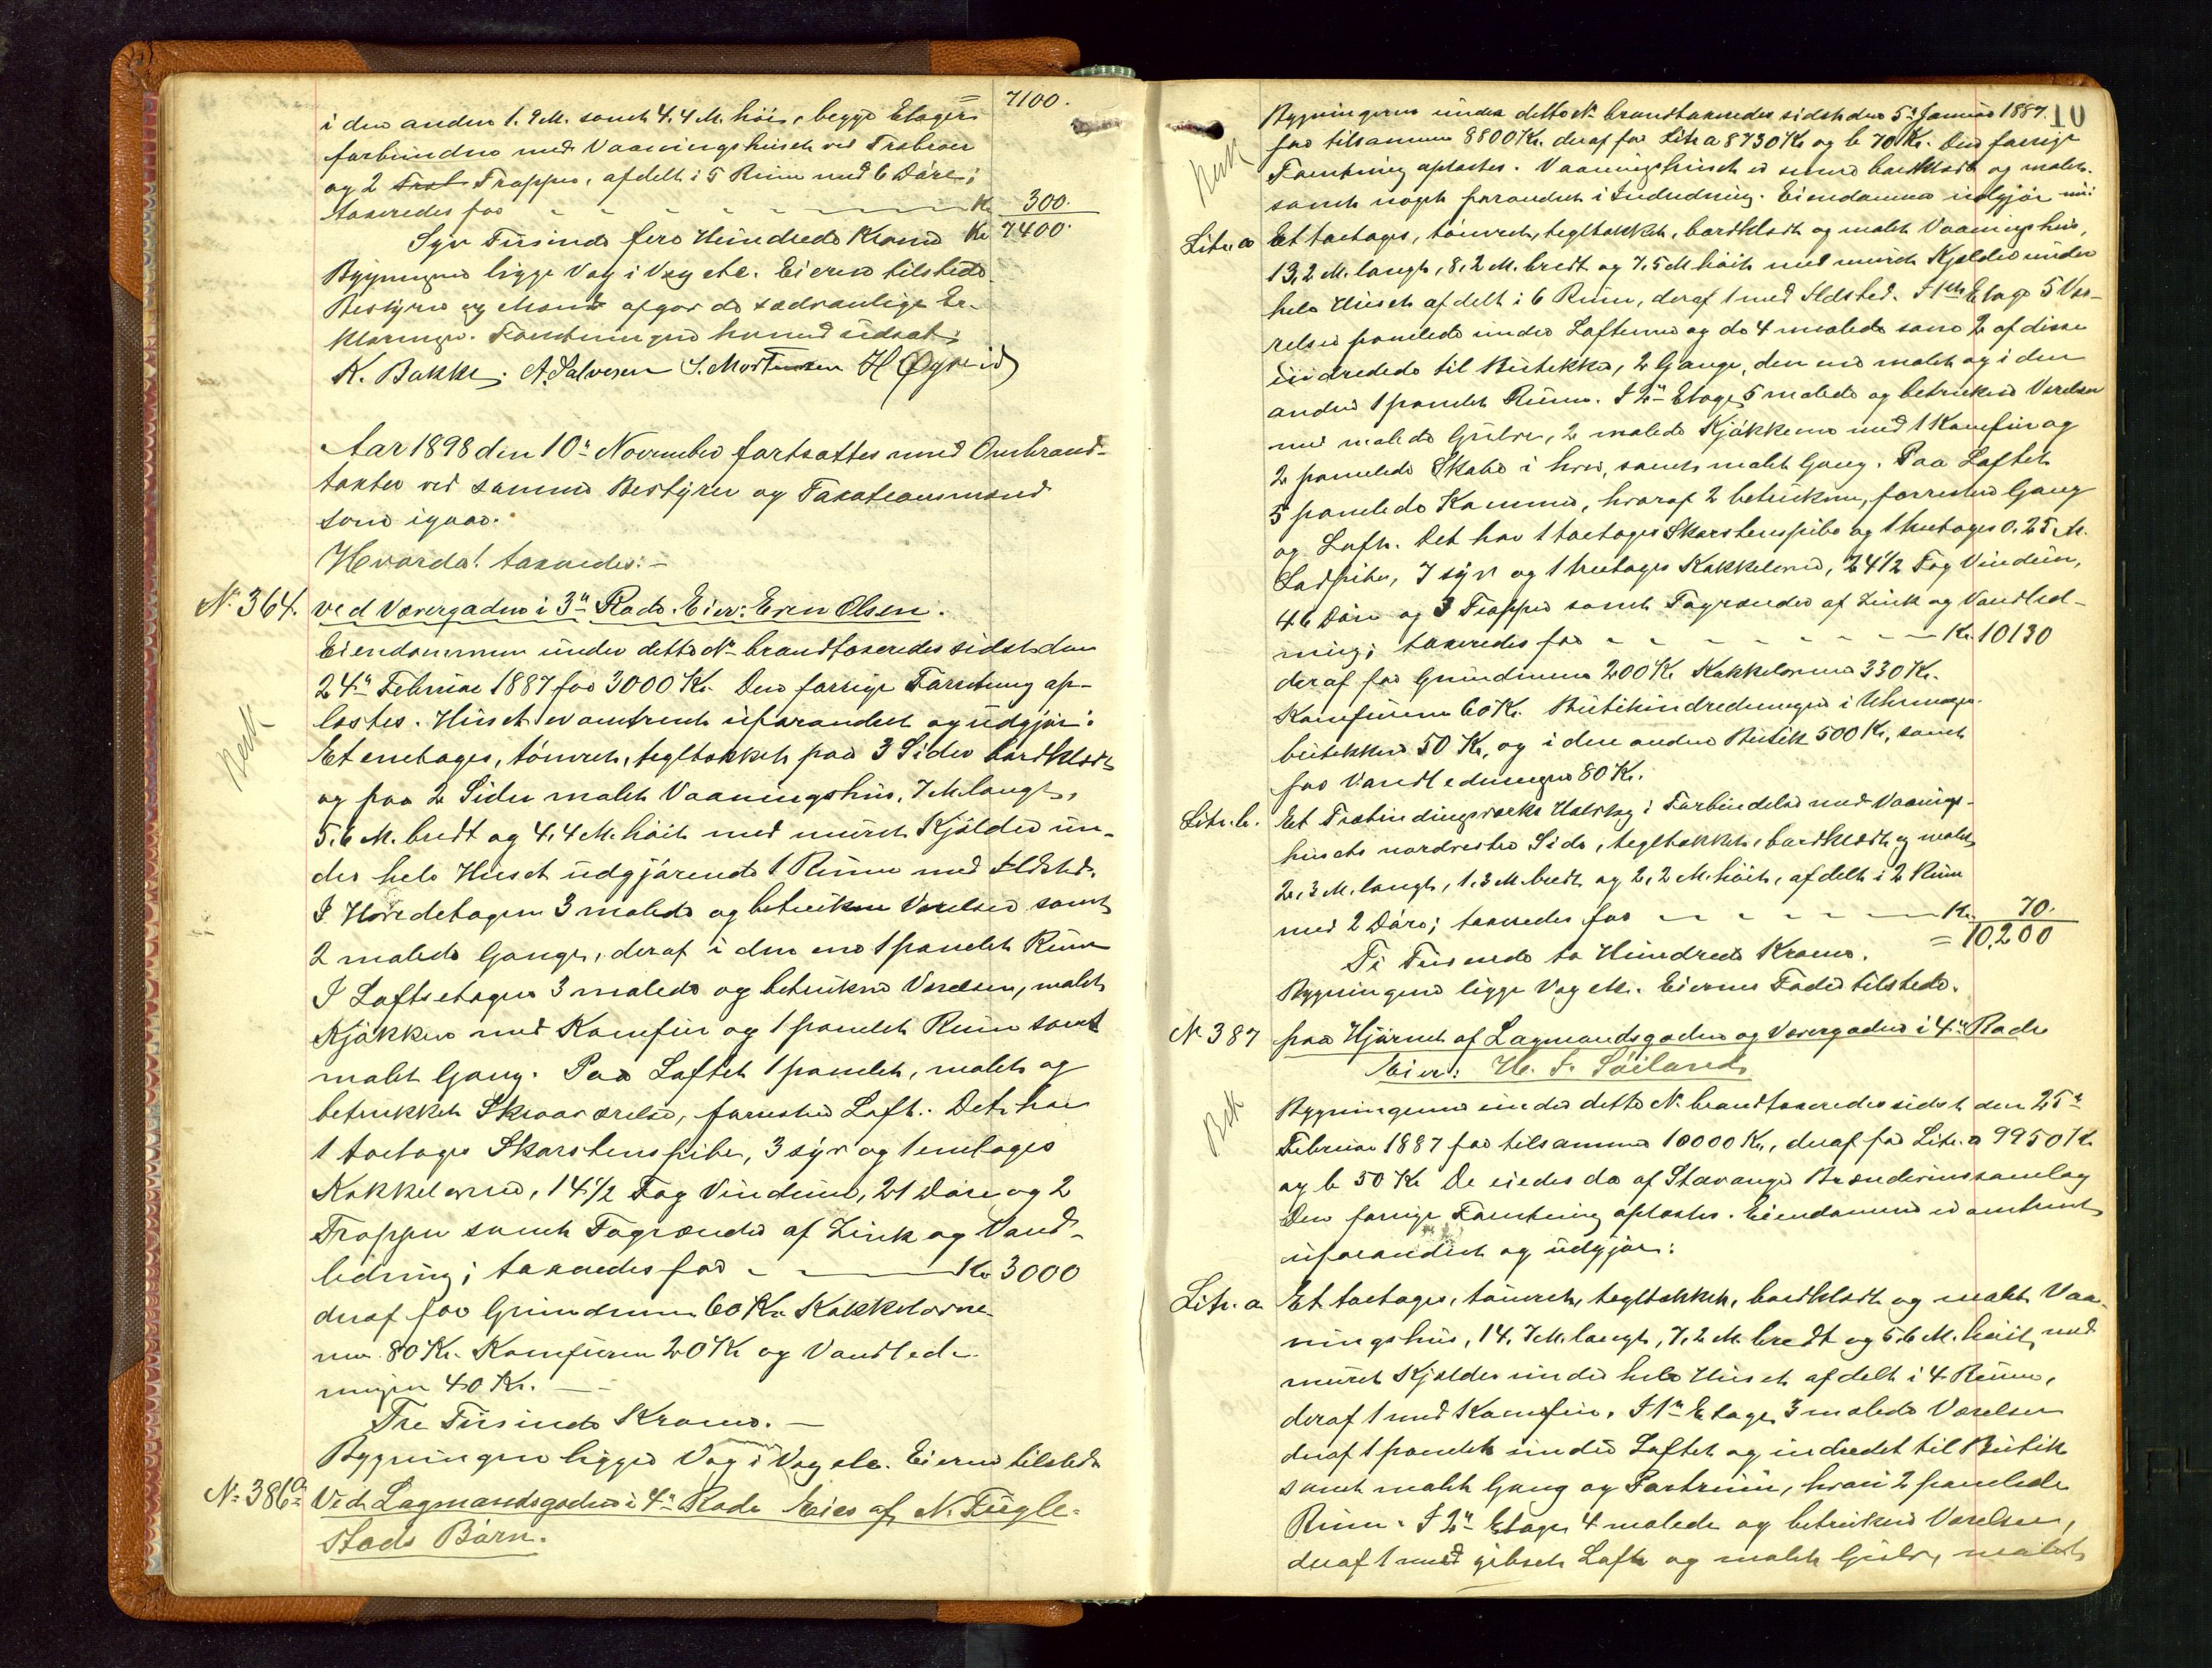 = 7100.
i den anden 1.9 M. samt 4.4 M. høi, begge Etager
forbundne med Vaaningshuset ved Træbroer
og 2 Trapper, afdelt i 5 Rum med 6 Døre;
taxeredes for - - - - Kr. 300.
Syv Tusinde fire Hundrede Kroner Kr 7400.
Bygningerne ligge Væg i Væg etc. Eieren tilstede.
Bestyrer og Mænd afgav de sædvanlige Er-
klæringer. Forretningen hermed udsat.
K. Bakke. A. Salvesen S. Mortensen H. Øgreid
Aar 1898 den 10de November fortsattes med Ombrand-
taxter ved samme Bestyrer og Taxationsmænd
som igaar.
Hvorda! taxeredes: -
No. 364. ved Værergaden i 3die Rode. Eier: Even Olsen.
Eiendommen under dette No. brandtaxeredes sidst den
24de Februar 1887 for 3000 Kr. Den forrige Forretning op-
læstes. Huset er omtrent uforandret og udgjør:
Et enetages, tømret, tegltækket paa 3 Sider bordklædt
og paa 2 Sider malet Vaaningshus, 7 M. langt,
5.6 M. bredt og 4,4 M. høit med muret Kjælder un-
der hele Huset udgjørende 1 Rum med Ildsted.
I Hovedetagen 3 malede og betrukne Værelser samt
2 malede Gange, deraf i den ene 1 panelet Rum
I Loftsetagen 3 malede og betrukne Værelser, malet
Kjøkken med Komfur og 1 panelet Rum samt
malet Gang. Paa Loftet 1 panelet, malet og
betrukket Skraaværelse, forresten Loft. Det har
1 toetages Skorstenspibe, 3 syv og 1 enetages
Kakkelovne, 14 1/2 Fag Vinduer, 21 Døre og 2
Trapper samt Tagrender af Zink og Vand-
ledning; taxeredes for - - Kr 3000
deraf for Grundmuren 60 Kr. Kakkelovne-
ne 80 Kr. Komfuren 20 Kr og Vandled-
ningen 40 Kr. -
Tre Tusinde Kroner. -
Bygningen ligger Væg i Væg etc. Eieren tilstede
No. 386a Ved Lagmandsgaden i 4de Rode Eies af N. Fugle-
stads Børn.
10
Bygningerne under dette No. brandtaxeredes sidst den 5te Januar 1887.
for tilsammen 8800 Kr. deraf for Litr a 8730 Kr og b 70 Kr. Den forrige
Forretning oplæstes. Vaaningshuset er senere bordklædt og malet.
samt noget forandret i Indredning. Eiendommen udgjør nu:
Litr. a Et toetages, tømret, tegltækket, bordklædt og malet Vaaningshus,
13,2 M. langt, 8,2 M. bredt og 7,5 M høit med muret Kjælder under
hele Huset afdelt i 6 Rum, deraf 1 med Ildsted. I 1ste Etage 5 Væ-
relser panelede under Lofterne og de 4 malede samt 2 af disse
indredede til Butikker, 2 Gange, den ene malet og i den
anden 1 panelet Rum. I 2den Etage, 5 malede og betrukne Værelser
med malede Gulve, 2 malede Kjøkkener med 1 Komfur og
2 panelede Skabe i hver, samt malet Gang. Paa Loftet
5 panelede Kammer, hvoraf 2 betrukne, forresten Gang
og Loft. Det har 1 toetages Skorstenspibe og 1 treetages 0.25 M.
Ladpibe, 7 syv og 1 treetages Kakkelovne, 24 1/2 Fag Vinduer,
46 Døre og 3 Trapper samt Tagrender af Zink og Vandled-
ning; taxeredes for - - - - Kr. 10130
deraf for Grundmuren 200 Kr Kakkelovnene 330 Kr.
Komfurene 60 Kr. Butikindredningen i Uhrmager-
butikken 50 Kr, og i den anden Butik 500 Kr, samt
for Vandledningen 80 Kr.
Litr. b. Et Træbindingsværks Udskyg i Forbindelse med Vaanings-
husets nordvestre Side, tegltækket, bordklædt og malet
2,3 M. langt, 1.3 M. bredt og 2,2 M. høit, afdelt i 2 Rum
med 2 Døre; taxeredes for - - - Kr. 70.
Ti Tusende to Hundrede Kroner. = 10,200
Bygningerne ligge Væg etc. Eiernes Fader tilstede.
No. 387 paa Hjørnet af Lagmandsgaden og Værergaden i 4de Rode
Eier: H. S. Søiland
Bygningerne under dette No. brandtaxeredes sidst den 25de
Februar 1887 for tilsammen 10000 Kr., deraf for Litr. a 9950 Kr
og b 50 Kr De eiedes da af Stavanger Brændevinssamlag
Den forrige Forretning oplæstes. Eiendommen er omtrent
uforandret og udgjør:
Litr. a Et toetages, tømret, tegltækket, bordklædt og malet Vaa-
ningshus, 14,7 M. langt, 7,2 M. bredt og 5.6 M. høit, med
muret Kjælder under hele Huset afdelt i 4 Rum,
deraf 1 med Komfur. I 1ste Etage, 3 malede Værelser
deraf 1 panelet under Loftet og indredet til Butik
samt malet Gang og Portrum, hvori 2 panelede
Rum. I 2den Etage 4 malede og betrukne Værelser,
deraf 1 med gibset Loft og malet Gulv, malet